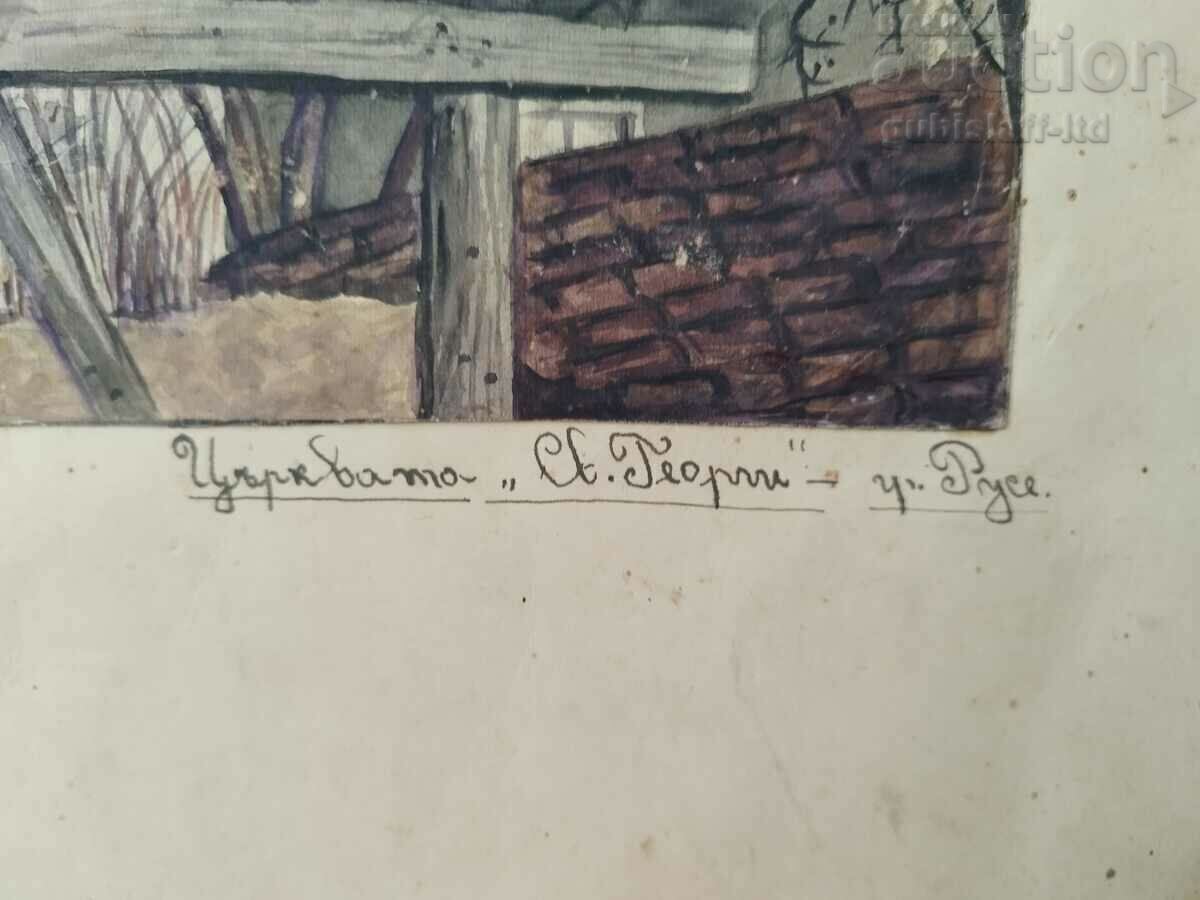 auction
gubislaff-ltd
Църквата „Св. Георги“ – гр. Русе.